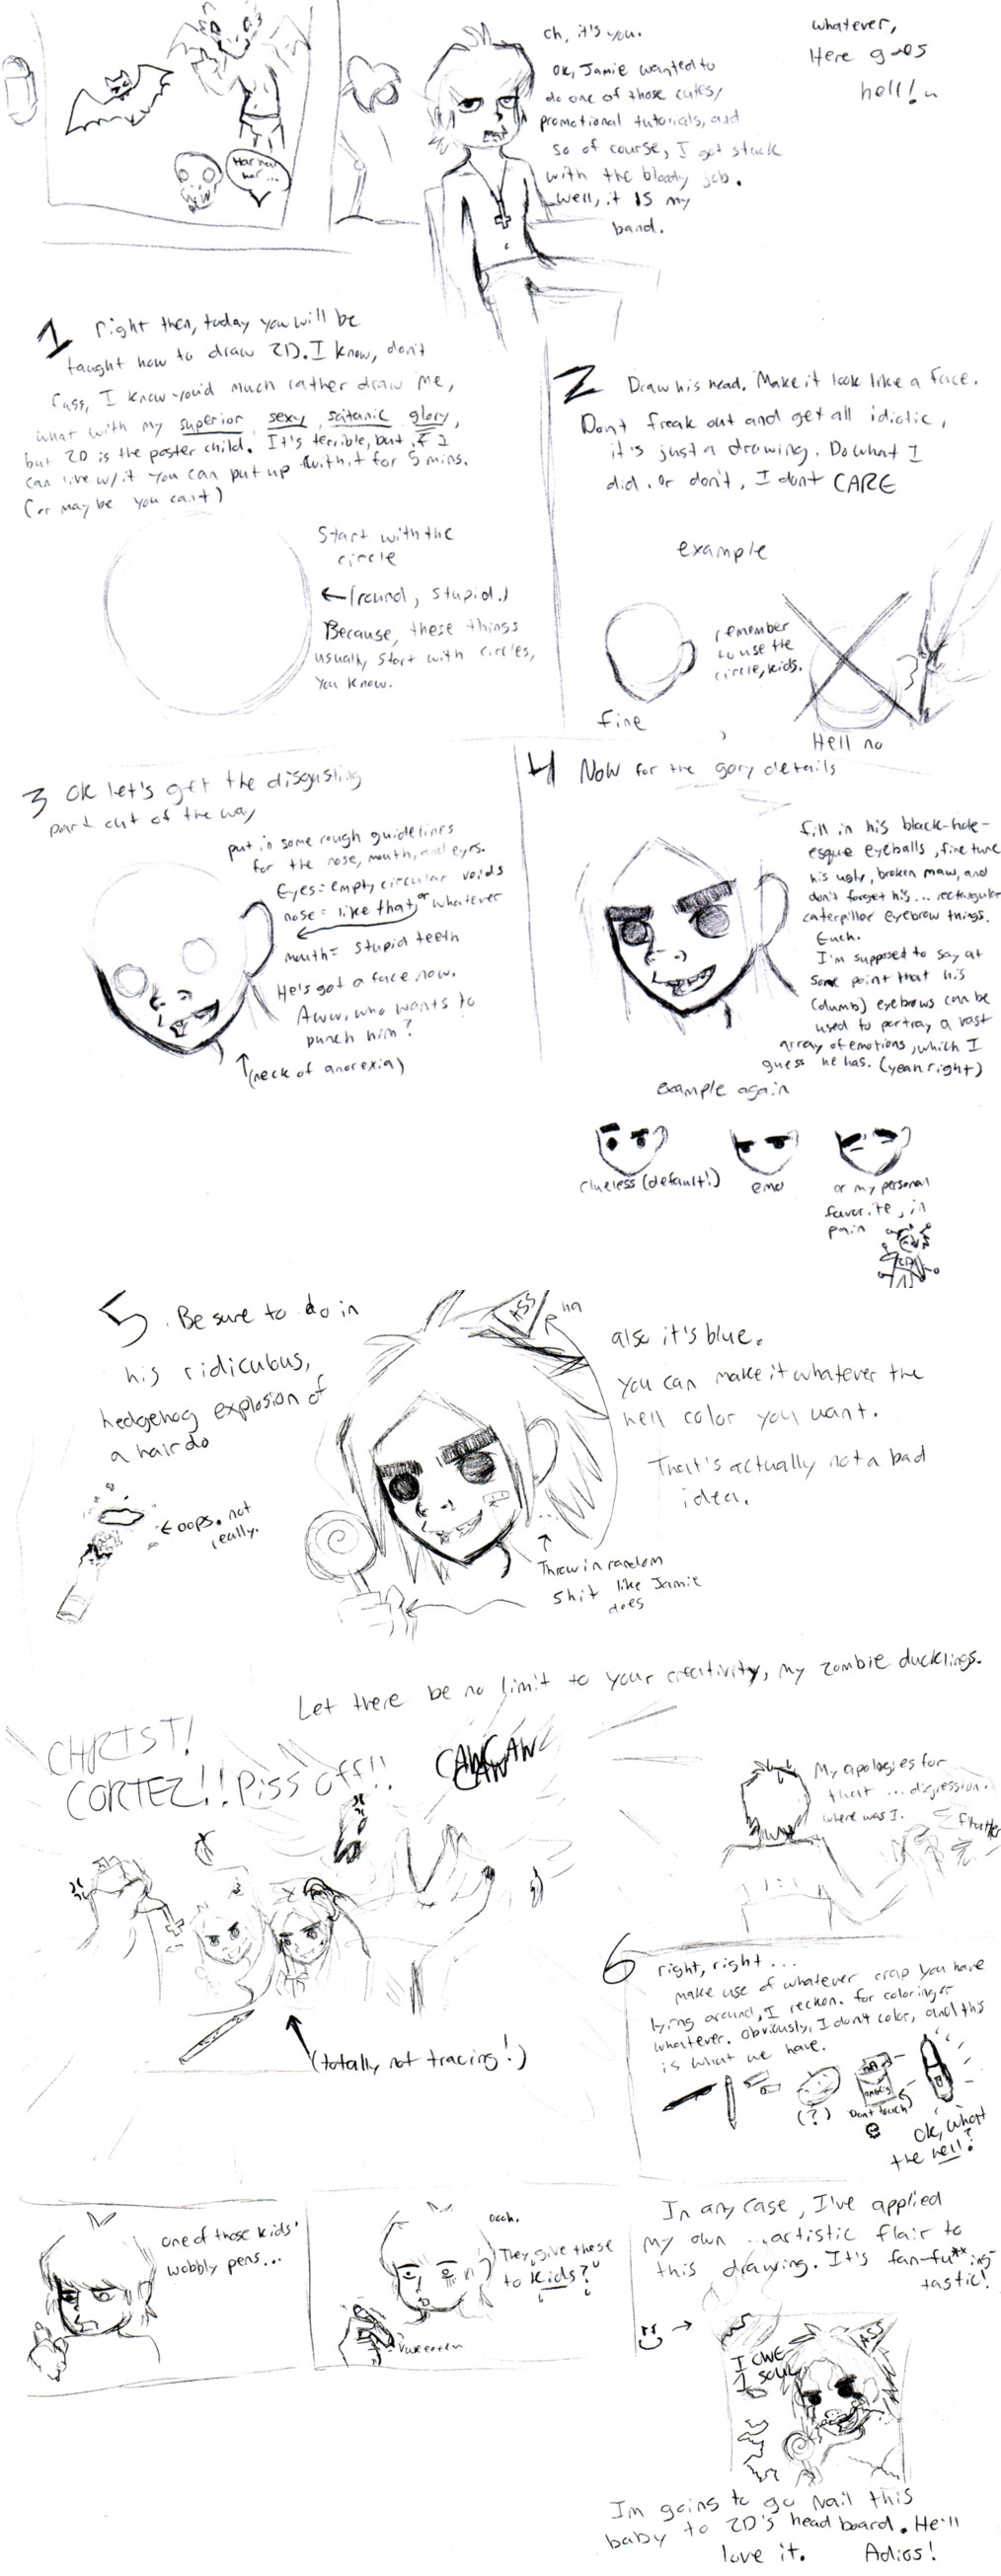 oh, it's you.
Ok, Jamie wanted to
do one of those cutesy
promotional tutorials, and
so of course, I got stuck
with the bloody job.
Well, it IS my
band.
whatever,
Here goes
hell!
Har har
har...
1 right then, today you will be
taught how to draw 2D. I know, don't
fuss, I know you'd much rather draw me,
what with my superior, sexy, satanic glory,
but 2D is the poster child. It's terrible, but if I
can live w/it you can put up with it for 5 mins.
(or maybe you can't)
Start with the
circle
(round, stupid.)
Because, these things
usually start with circles,
you know.
2 Draw his head. Make it look like a face.
Dont freak out and get all idiotic,
it's just a drawing. Do what I
did. or don't, I dont CARE
example
remember
to use the
circle, kids.
fine
Hell no
3 ok let's get the disgusting
part out of the way
put in some rough guidelines
for the nose, mouth, and eyes.
Eyes= empty circular voids
nose= like that, or whatever
mouth= stupid teeth
He's got a face now.
Aww, who wants to
punch him?
(neck of anorexia)
4 Now for the gory details
fill in his black-hole-
esque eyeballs, fine tune
his ugly, broken maw, and
don't forget his... rectangular
caterpillar eyebrow things.
Euch.
I'm supposed to say at
some point that his
(dumb) eyebrows can be
used to portray a vast
array of emotions, which I
guess he has. (yeah right)
example again
clueless (default!)
emo
or my personal
favorite, in
pain
5 Be sure to do in
his ridiculous,
hedgehog explosion of
a hairdo
oops. not
really.
ASS
ha
also it's blue.
you can make it whatever the
hell color you want.
That's actually not a bad
idea.
...
Throw in random
shit like Jamie
does
Let there be no limit to your creativity, my zombie ducklings.
CHRIST!
CORTEZ!! Piss off!!
CAW CAW
CAW
(totally not tracing!)
My apologies for
that ... digression.
where was I.
flutter
6 right, right...
make use of whatever crap you have
lying around, I reckon. for coloring or
whatever. obviously, I don't color, and this
is what we have.
(?)
Don't touch
Ok, what
the hell?
one of those kids'
wobbly pens...
oooh.
They give these
to kids?!
In any case, I've applied
my own ...artistic flair to
this drawing. It's fan-fu**ing-
tastic!
I OWE
1 SOUL
ASS
Im going to go Nail this
baby to 2D's headboard. He'll
love it. Adios!